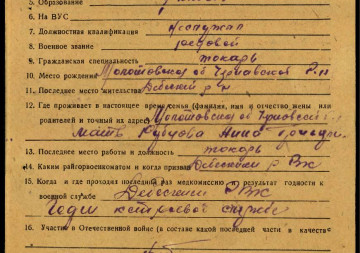 5. Образование
6. На ВУС
7. Должностная квалификация не служил
8. Военное звание рядовой
9. Гражданская специальность токарь
10. Место рождения Молотовская об
11. Последнее место жительства Дебесский р-н
12. Где проживает в настоящее время семья (фамилия, имя и отчество жены или
родителей и точный их адрес) Молотовская об
мать Анна
13. Последнее место работы и должность токарь
14. Каким райгорвоенкоматом и когда призван Дебесским РВК
15. Когда и где проходил последний раз медкомиссию и результат годности к
военной службе РВК
Годен к строевой службе
16. Участие в Отечественной войне (в составе какой последней части в качестве